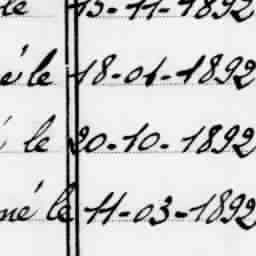 le 13-11-1892
né le 18-01-1892
le 20-10-1892
né le 11-03-1892